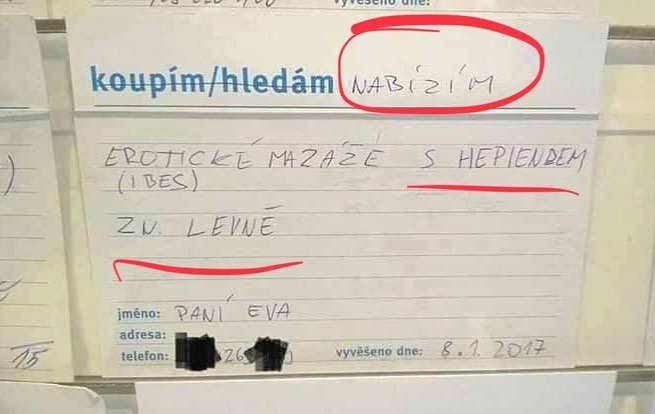 vyvěšeno dne:
koupím/hledám NABÍZÍM
EROTICKÉ MAZAŽÉ S HEPIENDEM
(I BES)
ZN. LEVNĚ
jméno: PANÍ EVA
adresa:
telefon: 26
vyvěšeno dne: 8.1.2017
15